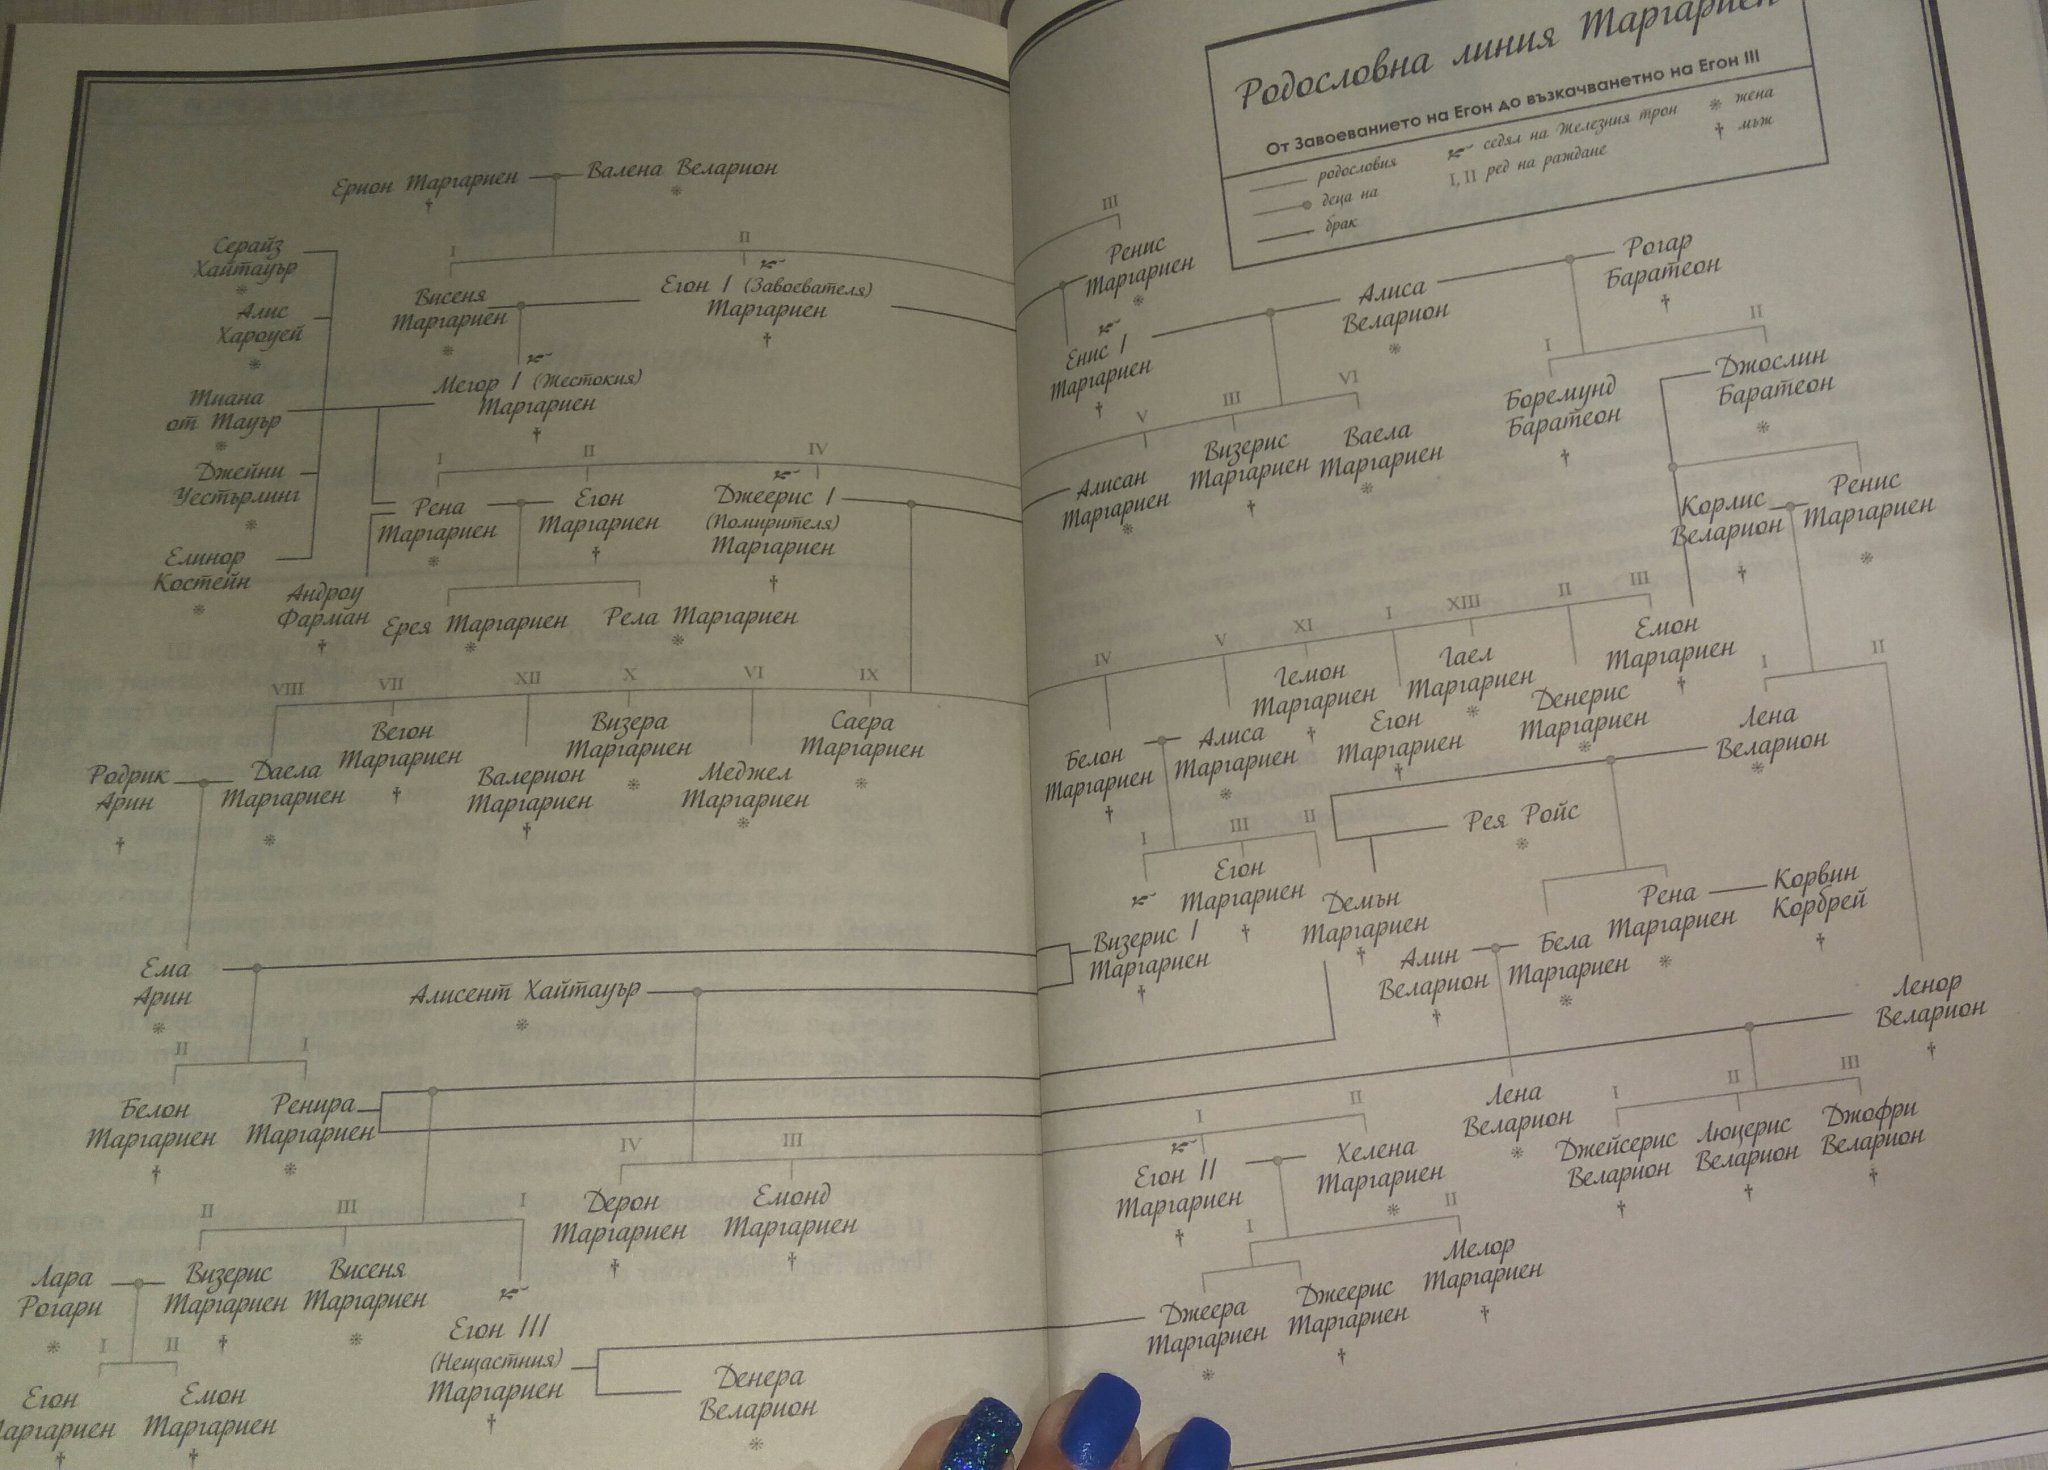 Родословна линия Таргариен
От Завоеванието на Егон до възкачванетно на Егон III
родословия
деца на
брак
седял на Железния трон
I, II ред на раждане
жена
мъж
Ерион Таргариен
Валена Веларион
I
II
Серайз
Хайтауър
Алис
Хароуей
Тиана
от Тауър
Джейни
Уестърлинг
Елинор
Костейн
Висеня
Таргариен
Егон I (Завоевателя)
Таргариен
Мегор I (Жестокия)
Таргариен
I
II
IV
Рена
Таргариен
Егон
Таргариен
Джеерис I
(Помирителя)
Таргариен
Андроу
Фарман
Ерея Таргариен
Рела Таргариен
VIII
VII
XII
X
VI
IX
Родрик
Арин
Даела
Таргариен
Вегон
Таргариен
Валерион
Таргариен
Визера
Таргариен
Меджел
Таргариен
Саера
Таргариен
Ема
Арин
Алисент Хайтауър
II
I
Белон
Таргариен
Ренира
Таргариен
IV
III
Дерон
Таргариен
Емонд
Таргариен
II
III
I
Лара
Рогари
Визерис
Таргариен
Висеня
Таргариен
Егон III
(Нещастния)
Таргариен
Денера
Веларион
I
II
Егон
Таргариен
Емон
Таргариен
III
Ренис
Таргариен
Рогар
Баратеон
Алиса
Веларион
Енис I
Таргариен
I
II
Боремунд
Баратеон
Джослин
Баратеон
V
III
VI
Алисан
Таргариен
Визерис
Таргариен
Ваела
Таргариен
Корлис
Веларион
Ренис
Таргариен
IV
V
XI
I
XIII
II
III
Белон
Таргариен
Алиса
Таргариен
Гемон
Таргариен
Егон
Таргариен
Гаел
Таргариен
Денерис
Таргариен
Емон
Таргариен
I
II
Лена
Веларион
Рея Ройс
I
III
II
Визерис I
Таргариен
Егон
Таргариен
Демън
Таргариен
Алин
Веларион
Бела
Таргариен
Рена
Таргариен
Корвин
Корбрей
Ленор
Веларион
Лена
Веларион
I
II
III
Джейсерис
Веларион
Люцерис
Веларион
Джофри
Веларион
I
II
Егон II
Таргариен
Хелена
Таргариен
I
II
Джеера
Таргариен
Джеерис
Таргариен
Мелор
Таргариен